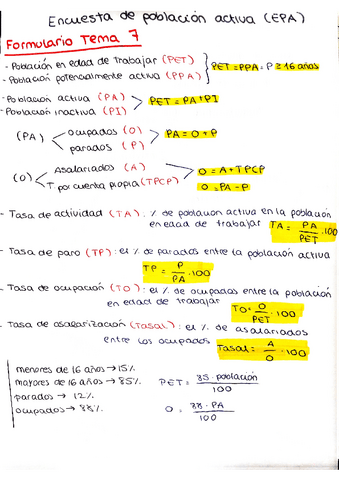 Encuesta de población activa (EPA)
Formulario Tema 7
- Población en edad de trabajar (PET)
- Población potencialmente activa (PPA)
PET = PPA = P ≥ 16 años
- Población activa (PA)
- Población inactiva (PI)
PET = PA + PI
(PA) ocupados (O)
parados (P)
PA = O + P
(O) Asalariados (A)
T. por cuenta propia (TPCP)
O = A + TPCP
O = PA - P
- Tasa de actividad (TA): % de población activa en la población
en edad de trabajar TA = PA/PET · 100
- Tasa de paro (TP): el % de parados entre la población activa
TP = P/PA · 100
- Tasa de ocupación (TO): el % de ocupados entre la población
en edad de trabajar TO = O/PET · 100
- Tasa de asalarización (Tasal): el % de asalariados
entre los ocupados Tasal = A/O · 100
menores de 16 años → 15%
mayores de 16 años → 85%
parados → 12%
ocupados → 88%
PET = 85 · población / 100
O = 88 · PA / 100